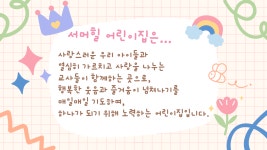 서머힐 어린이집은...
사랑스러운 우리 아이들과
열심히 가르치고 사랑을 나누는
교사들이 함께하는 곳으로,
행복한 웃음과 즐거움이 넘쳐나기를
매일매일 기도하며,
하나가 되기 위해 노력하는 어린이집입니다.